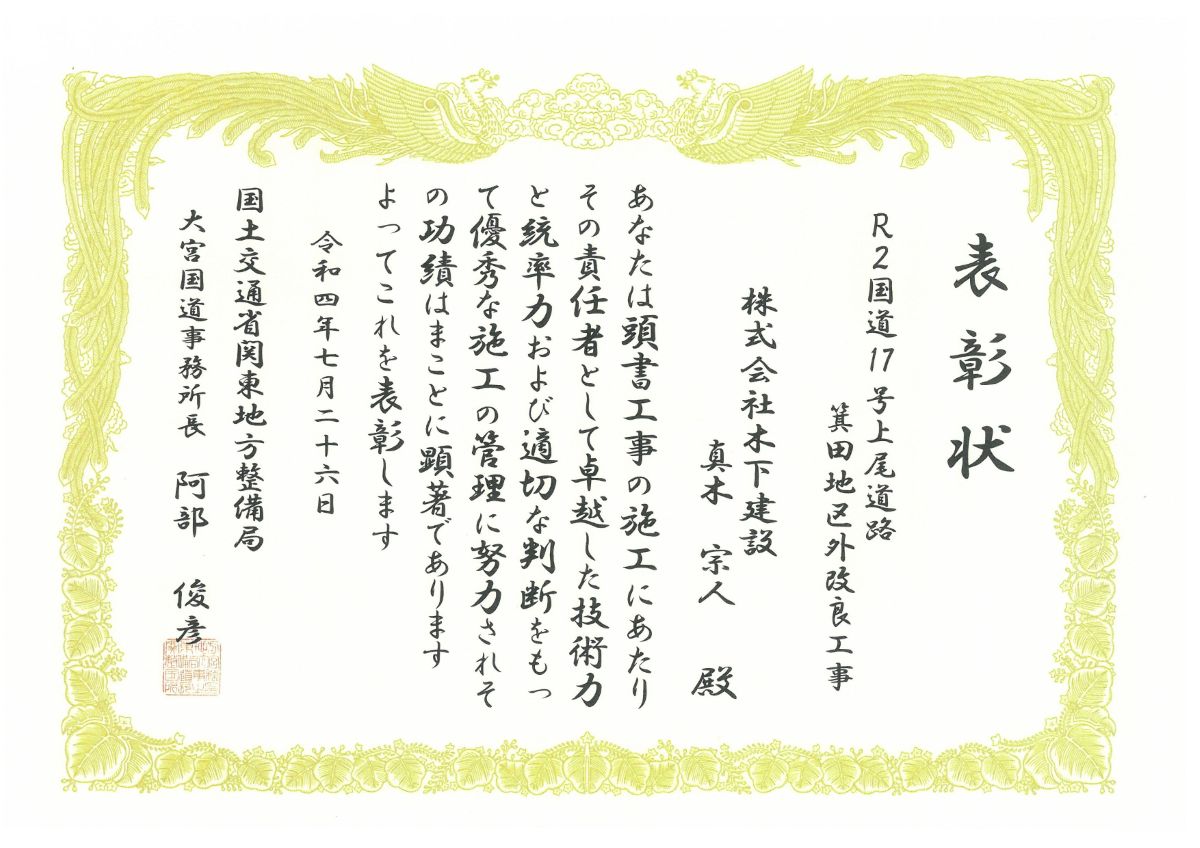 表彰状
R2国道17号上尾道路
箕田地区外改良工事
株式会社木下建設
真木 宗人 殿
あなたは頭書工事の施工にあたり
その責任者として卓越した技術力
と統率力および適切な判断をもっ
て優秀な施工の管理に努力されそ
の功績はまことに顕著であります
よってこれを表彰します
令和四年七月二十六日
国土交通省関東地方整備局
大宮国道事務所長 阿部 俊彦